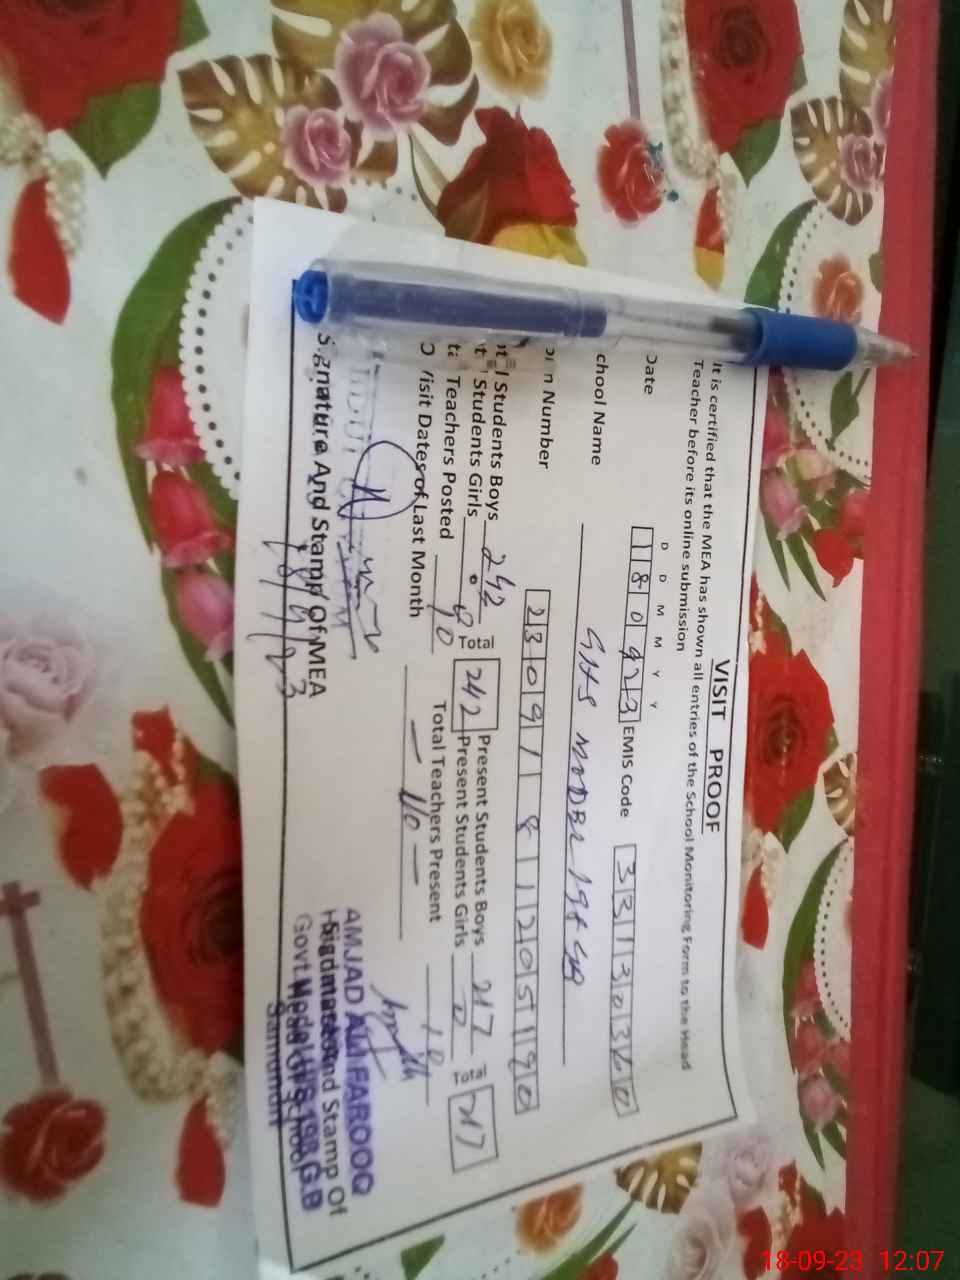 VISIT PROOF
It is certified that the MEA has shown all entries of the School Monitoring Form to the Head
Teacher before its online submission
D D M M Y Y
Date 180923 EMIS Code 33130360
chool Name GHS MODEL 198 GB
n Number 2309181205190
Students Boys 242 Total 242 Present Students Boys 217 Total 217
Students Girls 0 Present Students Girls 0
Teachers Posted 10 Total Teachers Present 10
Visit Dates of Last Month
Signature And Stamp Of MEA
18/9/23
AMJAD ALI FAROOQ
Signature And Stamp Of
Govt. Model H/S 198 G.B
Sammundri
18-09-23 12:07